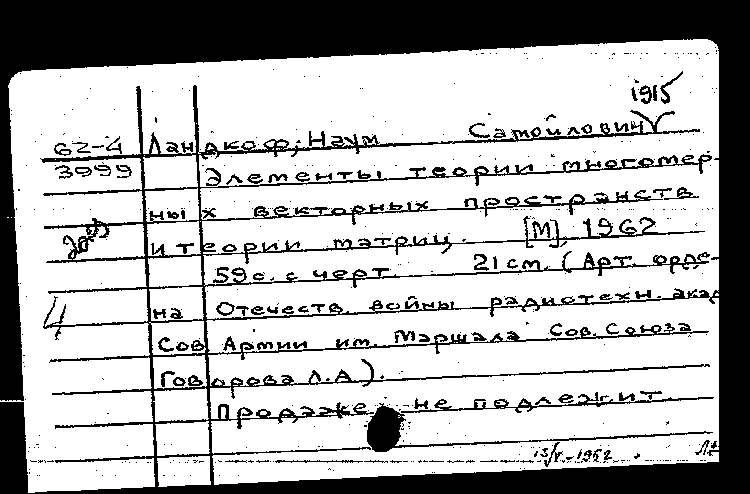 1915
62-4 Ландкоф, Наум Самойлович
3999 Элементы теории многомер-
ных векторных пространств
и теории матриц. [М], 1962
59 с. с черт. 21 см. (Арт. орде-
4 на Отечеств. войны радиотехн. акад
Сов Армии им. Маршала Сов. Союза
Говорова Л.А).
Продаже не подлежит
13/V-1962